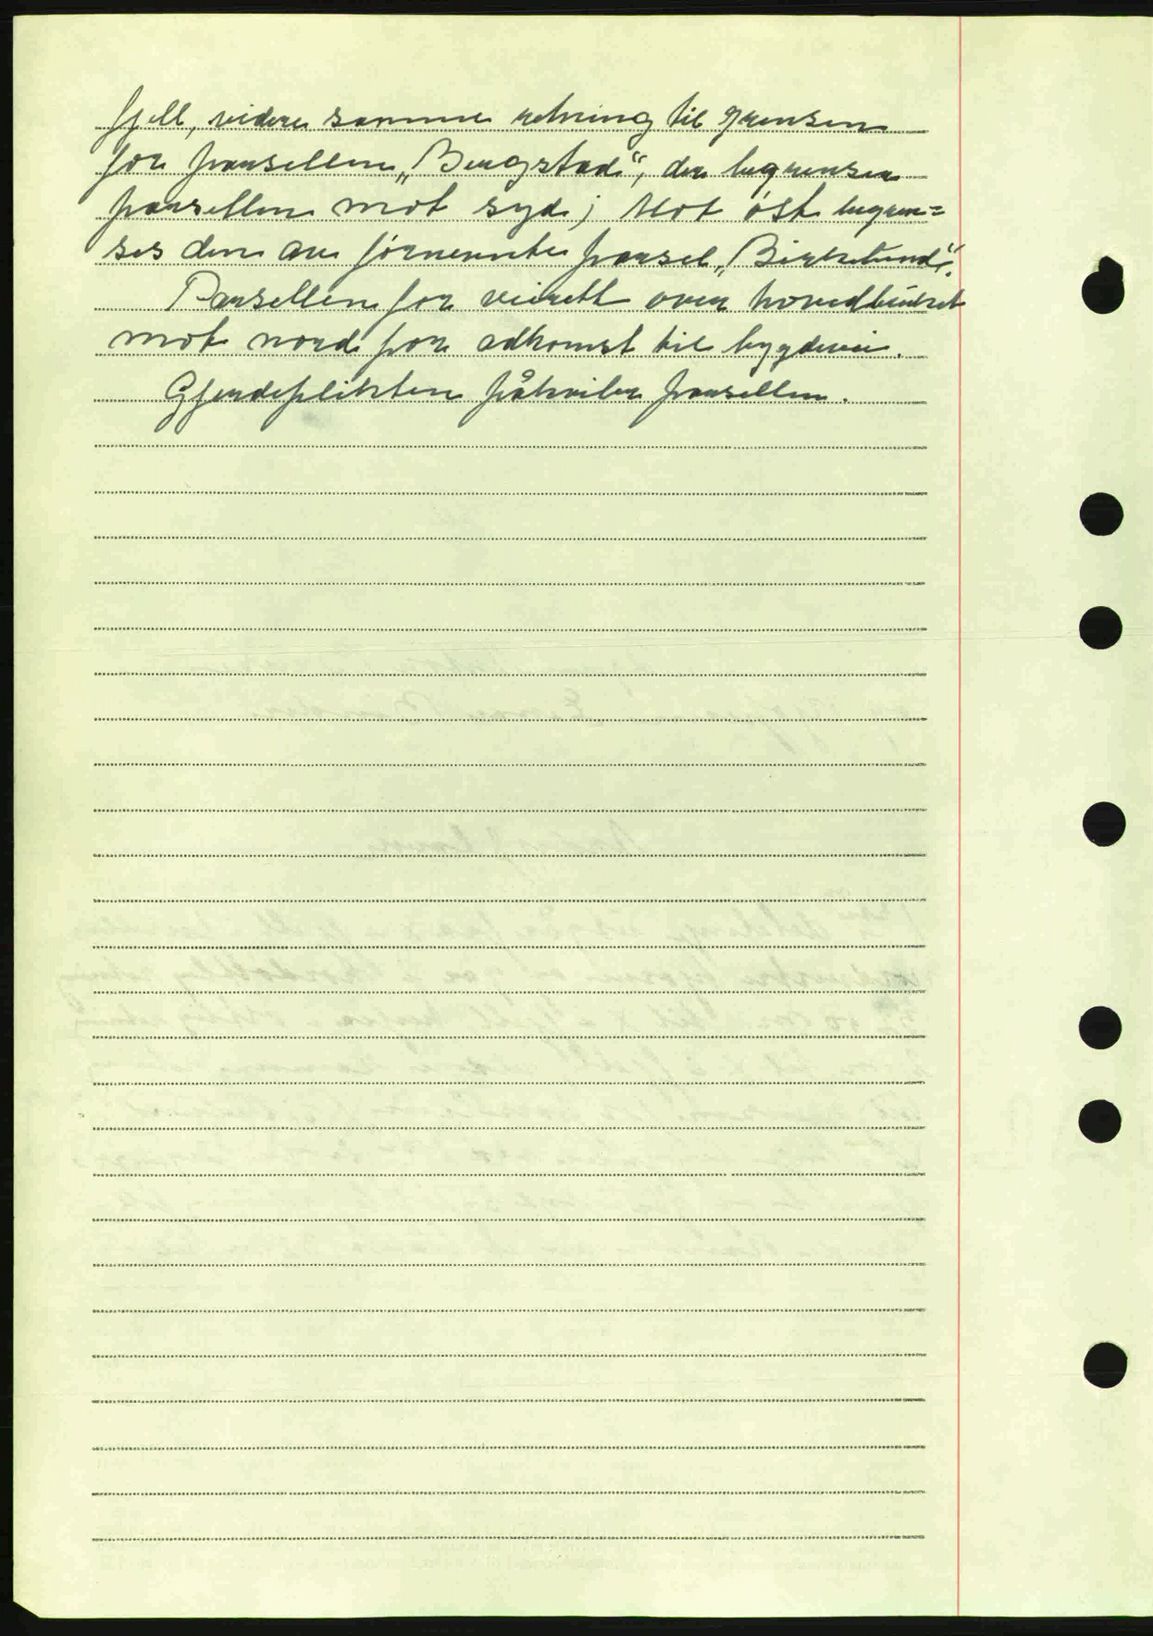 fjell, videre samme retning til grensen
for parsellen „Bergstad“, der begrenser
parsellen mot syd; Mot øst begren=
ses den av førnevnte parsel „Birkelund“.
Parsellen for veirett over hovedbruket
mot nord for adkomst til bygdevei.
Gjerdeplikten påhviler parsellen.